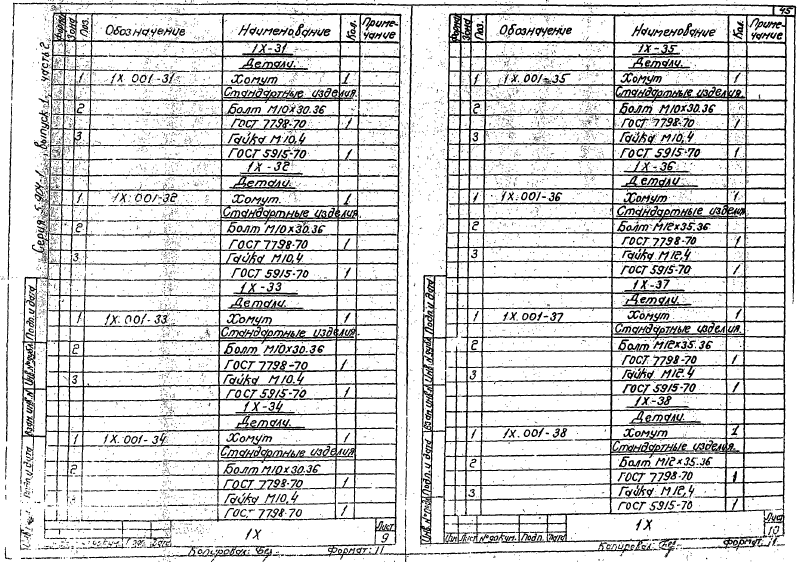 45
Формат Зона Поз. Обозначение Наименование Кол. Примечание
1Х-31
Детали.
1 1Х.001-31 Хомут 1
Стандартные изделия
2 Болт М10х30.36
ГОСТ 7798-70 1
3 Гайка М10.4
ГОСТ 5915-70 1
1Х-32
Детали.
1 1Х.001-32 Хомут 1
Стандартные изделия
2 Болт М10х30.36
ГОСТ 7798-70 1
3 Гайка М10.4
ГОСТ 5915-70 1
1Х-33
Детали.
1 1Х.001-33 Хомут 1
Стандартные изделия
2 Болт М10х30.36
ГОСТ 7798-70 1
3 Гайка М10.4
ГОСТ 5915-70 1
1Х-34
Детали.
1 1Х.001-34 Хомут 1
Стандартные изделия
2 Болт М10х30.36
ГОСТ 7798-70 1
Гайка М10.4
ГОСТ 7798-70 1
1Х
Лист
9
Копировал: Формат: 11
Серия выпуск 1. часть 2
Инв.№ дубл. Подп. и дата
Взам. инв.№
Подп. и дата
Зона Поз. Обозначение Наименование Кол. Примечание
1Х-35
Детали.
1 1Х.001-35 Хомут 1
Стандартные изделия
2 Болт М10х30.36
ГОСТ 7798-70 1
3 Гайка М10.4
ГОСТ 5915-70 1
1Х-36
Детали.
1 1Х.001-36 Хомут 1
Стандартные изделия
2 Болт М12х35.36
ГОСТ 7798-70 1
3 Гайка М12.4
ГОСТ 5915-70 1
1Х-37
Детали.
1 1Х.001-37 Хомут 1
Стандартные изделия
2 Болт М12х35.36
ГОСТ 7798-70 1
3 Гайка М12.4
ГОСТ 5915-70 1
1Х-38
Детали.
1 1Х.001-38 Хомут 1
Стандартные изделия.
2 Болт М12х35.36
ГОСТ 7798-70 1
3 Гайка М12.4
ГОСТ 5915-70 1
Изм. Лист № докум. Подп. Дата
1Х
Лист
10
Копировал: Формат: 11
Инв.№ подл. Подп. и дата Взам. инв.№ Инв.№ дубл. Подп. и дата